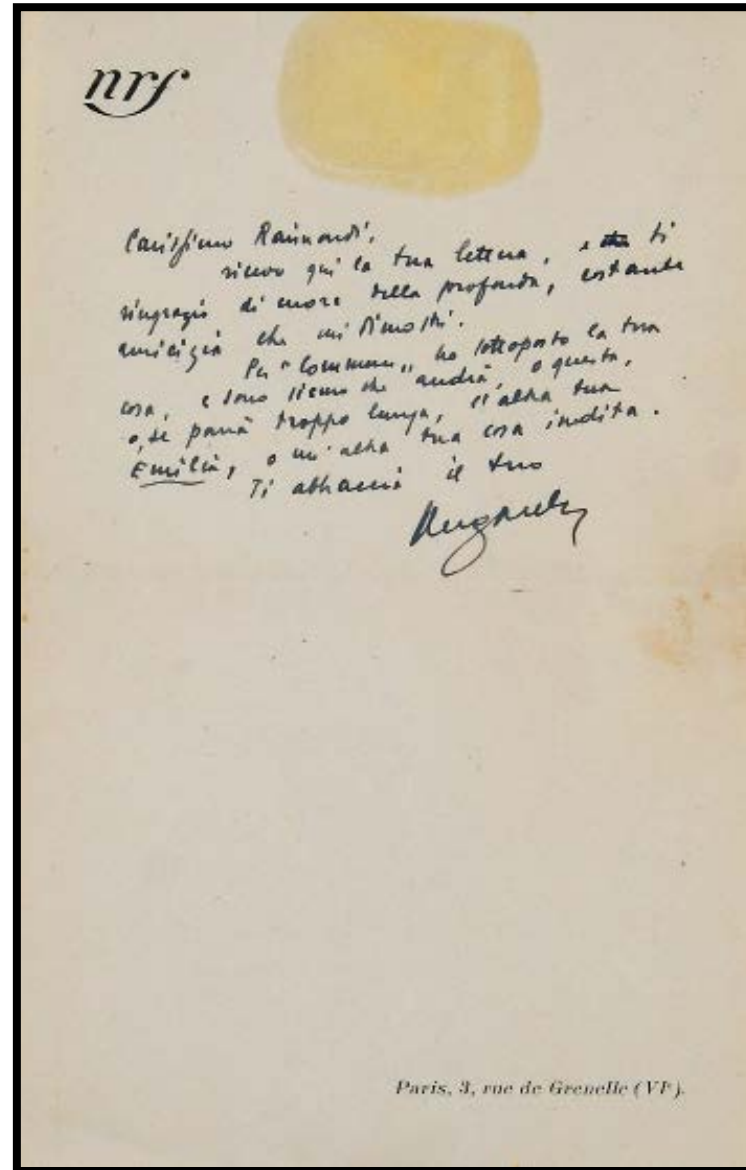 nrf
Carissimo Raimondi,
ricevo qui la tua lettera, e ti
ringrazio di cuore della profonda, costante
amicizia che mi dimostri.
Per "Commerce" ho sottoposto la tua
cosa, e sono sicuro che andrà, o questa,
o, se parrà troppo lunga, l'altra tua
Emilia, o un'altra tua cosa inedita.
Ti abbraccia il tuo
Ungaretti
Paris, 3, rue de Grenelle (VIᵉ).